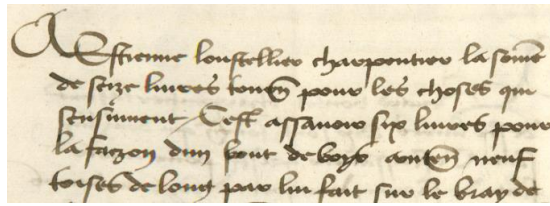 A Estienne loustellier charpentier la some
de seize livres tourn pour les choses qui
sensuivent Cest assavoir six livres pour
la faczon dun pont de boys conten neuf
toises de long par lui fait sur le bray de